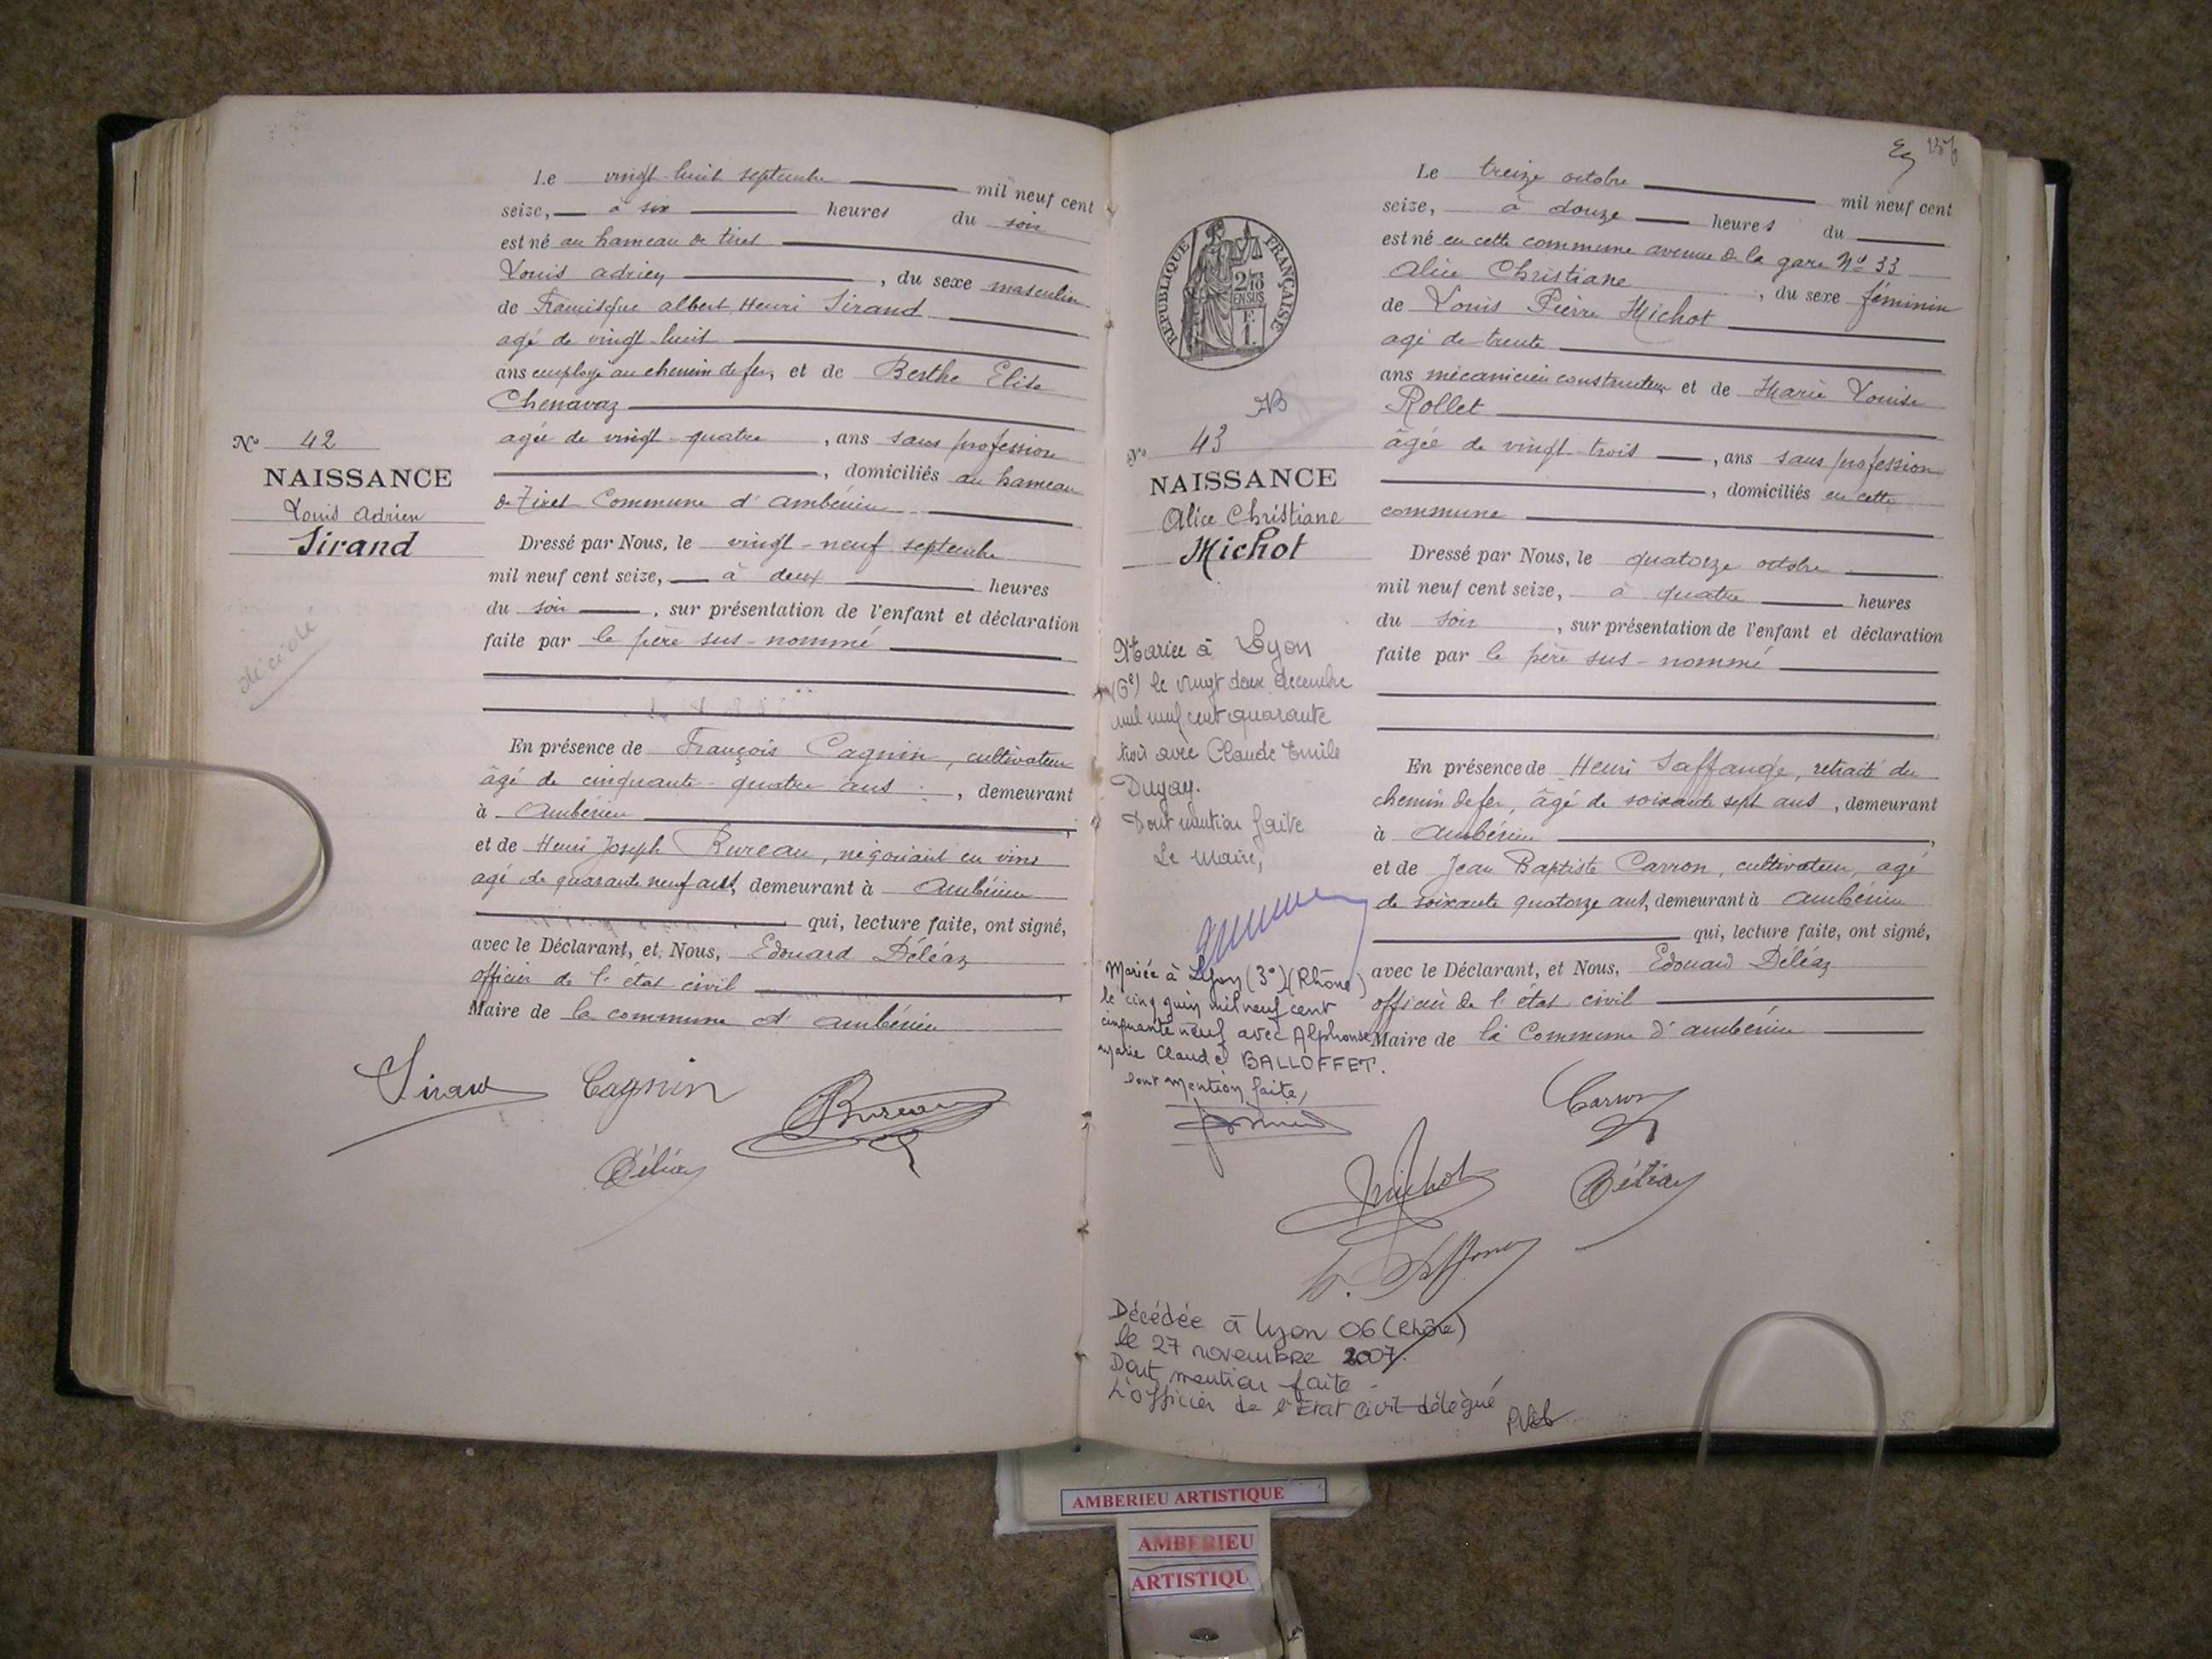 Le vingt-huit septembre mil neuf cent
seize, à six heures du soir
est né au hameau de tiret
Louis Adrien, du sexe masculin
de Francisque albert Henri Sirand
agé de vingt-huit
ans employé au chemin de fer, et de Berthe Elise
Chenavaz
agée de vingt-quatre, ans sans profession
, domiciliés au hameau
de Tiret Commune d'ambérieu
N° 42
NAISSANCE
Louis Adrien
Sirand
décédé
Dressé par Nous, le vingt-neuf septembre
mil neuf cent seize, à deux heures
du soir, sur présentation de l'enfant et déclaration
faite par le père sus-nommé
En présence de François Cagnin, cultivateur
âgé de cinquante-quatre ans, demeurant
à Ambérieu
et de Henri Joseph Bureau, négociant en vins
agé de quarante neuf ans, demeurant à Ambérieu
qui, lecture faite, ont signé,
avec le Déclarant, et Nous, Edouard Déléaz
officier de l'état civil
Maire de la commune d'ambérieu
Sirand Cagnin Bureau
Déléaz
Le treize octobre mil neuf cent
seize, à douze heures du
est né en cette commune avenue de la gare N° 33
Alice Christiane, du sexe féminin
de Louis Pierre Michot
agé de trente
ans mécanicien constructeur et de Marie Louise
Rollet
âgée de vingt-trois, ans sans profession
, domiciliés en cette
commune
RÉPUBLIQUE FRANÇAISE
2/10
EN SUS
F.
1.
N° 43
NAISSANCE
Alice Christiane
Michot
Dressé par Nous, le quatorze octobre
mil neuf cent seize, à quatre heures
du soir, sur présentation de l'enfant et déclaration
faite par le père sus-nommé
En présence de Henri Saffange, retraité du
chemin de fer, âgé de soixante sept ans, demeurant
à Ambérieu
et de Jean Baptiste Carron, cultivateur, agé
de soixante quatorze ans, demeurant à Ambérieu
qui, lecture faite, ont signé,
avec le Déclarant, et Nous, Edouard Déléaz
officier de l'état civil
Maire de la Commune d'ambérieu
Mariée à Lyon
(6e) le vingt deux decembre
mil neuf cent quarante
trois avec Claude Emile
Dugay.
Dont mention faite
Le Maire,
Mariée à Lyon (3°) (Rhône)
le cinq juin mil neuf cent
cinquante neuf avec Alphonse
Marie Claude BALLOFFET.
dont mention faite,
Carron
Michot Déléaz
Décédée à Lyon 06 (Rhône)
le 27 novembre 2007.
Dont mention faite
L'officier de l'Etat civil délégué
AMBERIEU ARTISTIQUE
AMBERIEU
ARTISTIQU